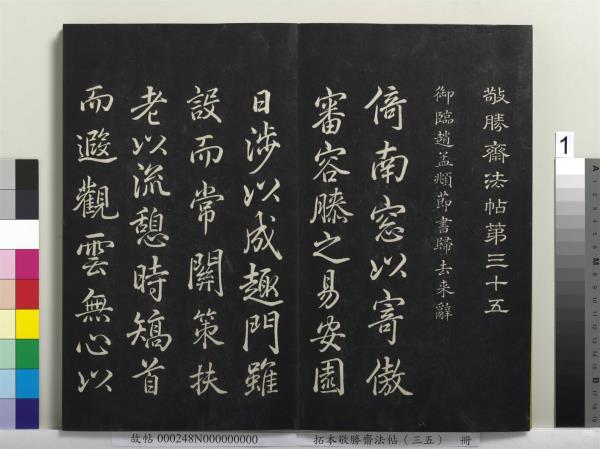 敬勝齋法帖第三十五
御臨趙孟頫節書歸去来辭
倚南窓以寄傲
審容膝之易安園
日涉以成趣門雖
設而常關策扶
老以流憩時矯首
而遐觀雲無心以
1
故帖 000248N000000000
拓本敬勝齋法帖（三五） 冊